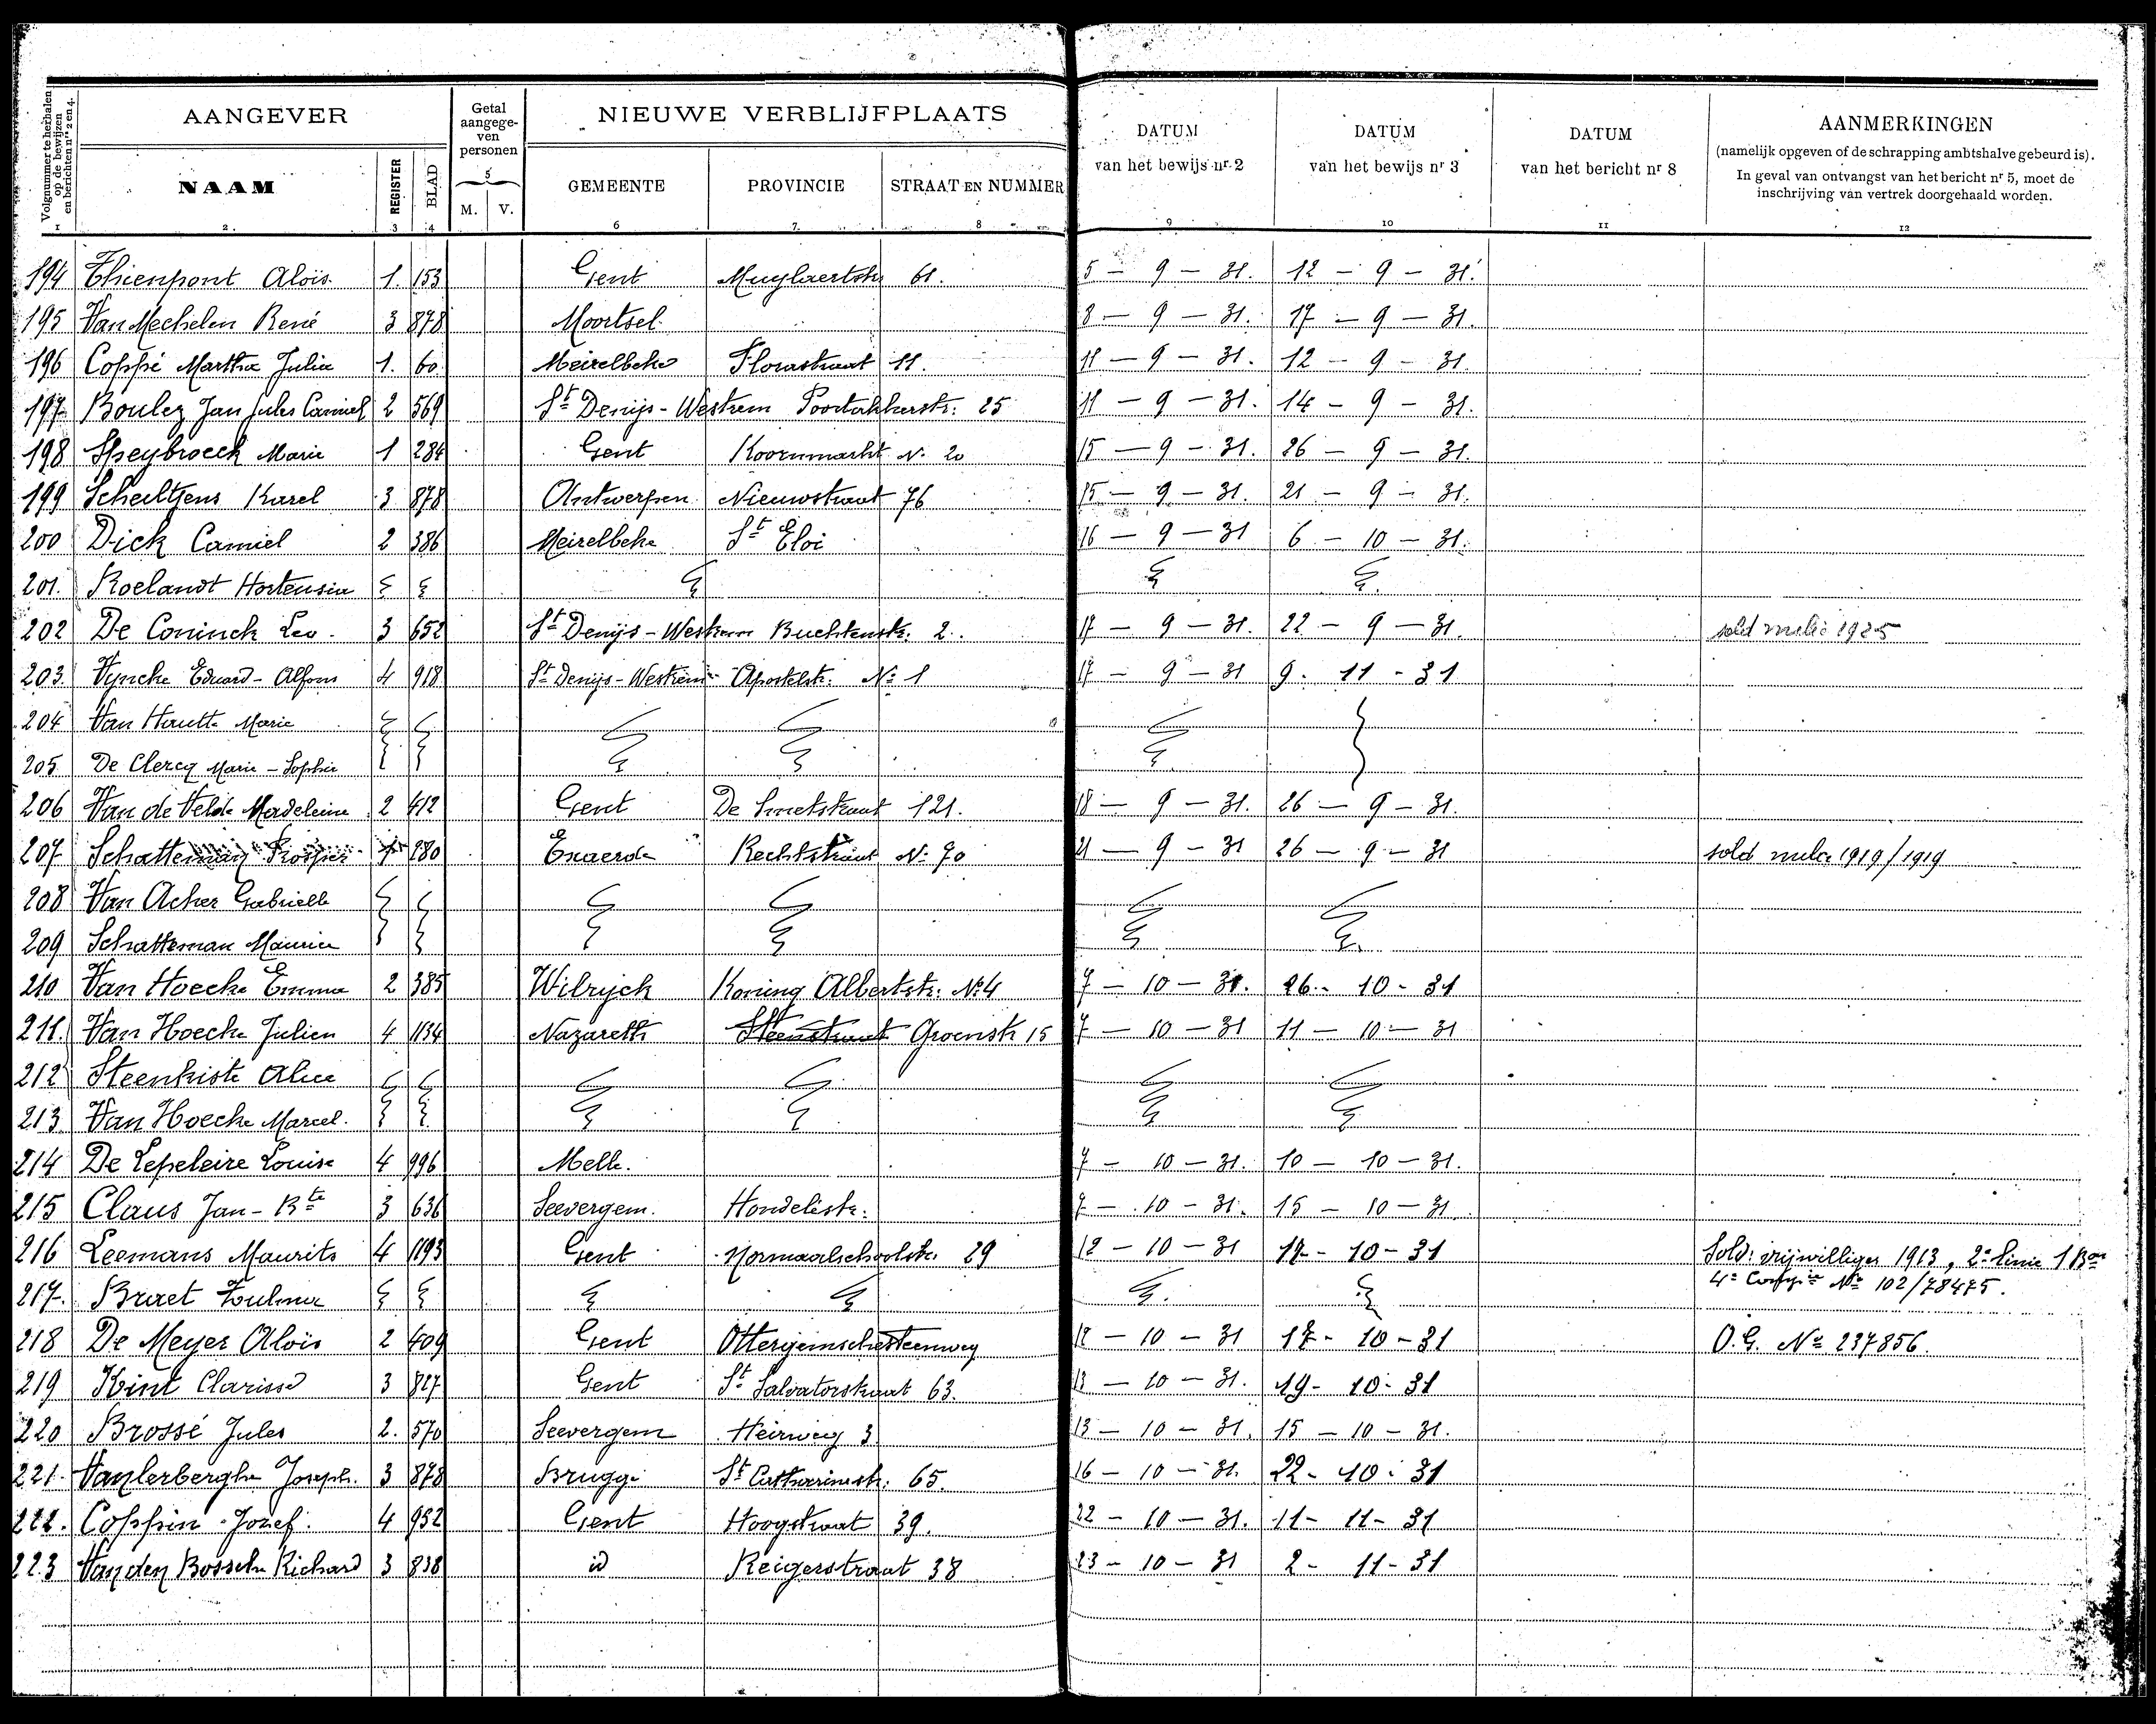 Volgnummer te herhalen op de bewijzen en berichten nrs 2 en 4.
AANGEVER
Getal aangege-ven personen
NIEUWE VERBLIJFPLAATS
DATUM van het bewijs nr 2
DATUM van het bewijs nr 3
DATUM van het bericht nr 8
AANMERKINGEN
(namelijk opgeven of de schrapping ambtshalve gebeurd is).
In geval van ontvangst van het bericht nr 5, moet de
inschrijving van vertrek doorgehaald worden.
NAAM REGISTER BLAD M. V. GEMEENTE PROVINCIE STRAAT EN NUMMER
1 2 3 4 5 6 7 8 9 10 11 12
194 Thienpont Aloïs 1. 153 Gent Muylaertstr 61. 5 - 9 - 31. 12 - 9 - 31.
195 Van Mechelen René 3 878 Moortsel 8 - 9 - 31. 17 - 9 - 31.
196 Coppé Martha Julia 1. 60 Meirelbeke Florastraat 11. 11 - 9 - 31. 12 - 9 - 31.
197 Boulez Jan Jules Camiel 2 569 St Denijs-Westrem Poortakkerstr: 25 11 - 9 - 31. 14 - 9 - 31.
198 Speybroeck Marie 1 284 Gent Koornmarkt No 20 15 - 9 - 31. 26 - 9 - 31.
199 Scheltjens Karel 3 878 Antwerpen Nieuwstraat 76 15 - 9 - 31. 21 - 9 - 31.
200 Dick Camiel 2 386 Meirelbeke St Eloi 16 - 9 - 31 6 - 10 - 31.
201. Roelandt Hortensia
202 De Coninck Leo. 3 652 St Denijs-Westrem Buchtenstr. 2. 17 - 9 - 31. 22 - 9 - 31. sold milie 1925
203. Vyncke Eduard-Alfons 4 918 St Denijs-Westrem Apostelstr: No 1 17 - 9 - 31 9. 11 - 31
204 Van Hautte Marie
205. De Clercq Marie-Sophie
206 Van de Velde Madeleine 2 412 Gent De Smetstraat 121. 18 - 9 - 31. 26 - 9 - 31.
207. Schatteman Prosper 280 Exaerde Rechtstraat No 70 21 - 9 - 31 26 - 9 - 31 sold milie 1919/1919
208 Van Acker Gabrielle
209 Schatteman Maurice
210 Van Hoecke Emma 2 385 Wilrijck Koning Albertstr: No 4 7 - 10 - 31. 26 - 10 - 31
211. Van Hoecke Julien 4 1134 Nazareth Steenstraat Groenstr 15 7 - 10 - 31 11 - 10 - 31
212 Steenkiste Alice
213. Van Hoecke Marcel.
214 De Lepeleire Louise 4 996 Melle. 7 - 10 - 31. 10 - 10 - 31.
215 Claus Jan-Bte 3 636 Seevergem. Hondelestr: 7 - 10 - 31. 15 - 10 - 31.
216 Leemans Maurits 4 1193 Gent Normaalschoolstr. 29 12 - 10 - 31 17 - 10 - 31 Sold: vrijwilliger 1913, 2e linie 1 Bon
4e Compie No 102/78475.
217. Braet Zulma
218 De Meyer Aloïs 2 409 Gent Ottergemschesteenweg 12 - 10 - 31 17 - 10 - 31 O.G. No 237856.
219 Kint Clarisse 3 827 Gent St Salvatorstraat 63. 13 - 10 - 31. 19 - 10 - 31
220 Brossé Jules 2. 570 Seevergem Heirweg 3 13 - 10 - 31. 15 - 10 - 31.
221. Vanlerberghe Joseph. 3 878 Brugge St Catharinestr: 65. 16 - 10 - 31. 22 - 10 - 31
222. Coppin Jozef. 4 952 Gent Hoogstraat 39. 22 - 10 - 31. 11 - 11 - 31
223 Van den Bossche Richard 3 838 id Reigerstraat 38 23 - 10 - 31 2 - 11 - 31